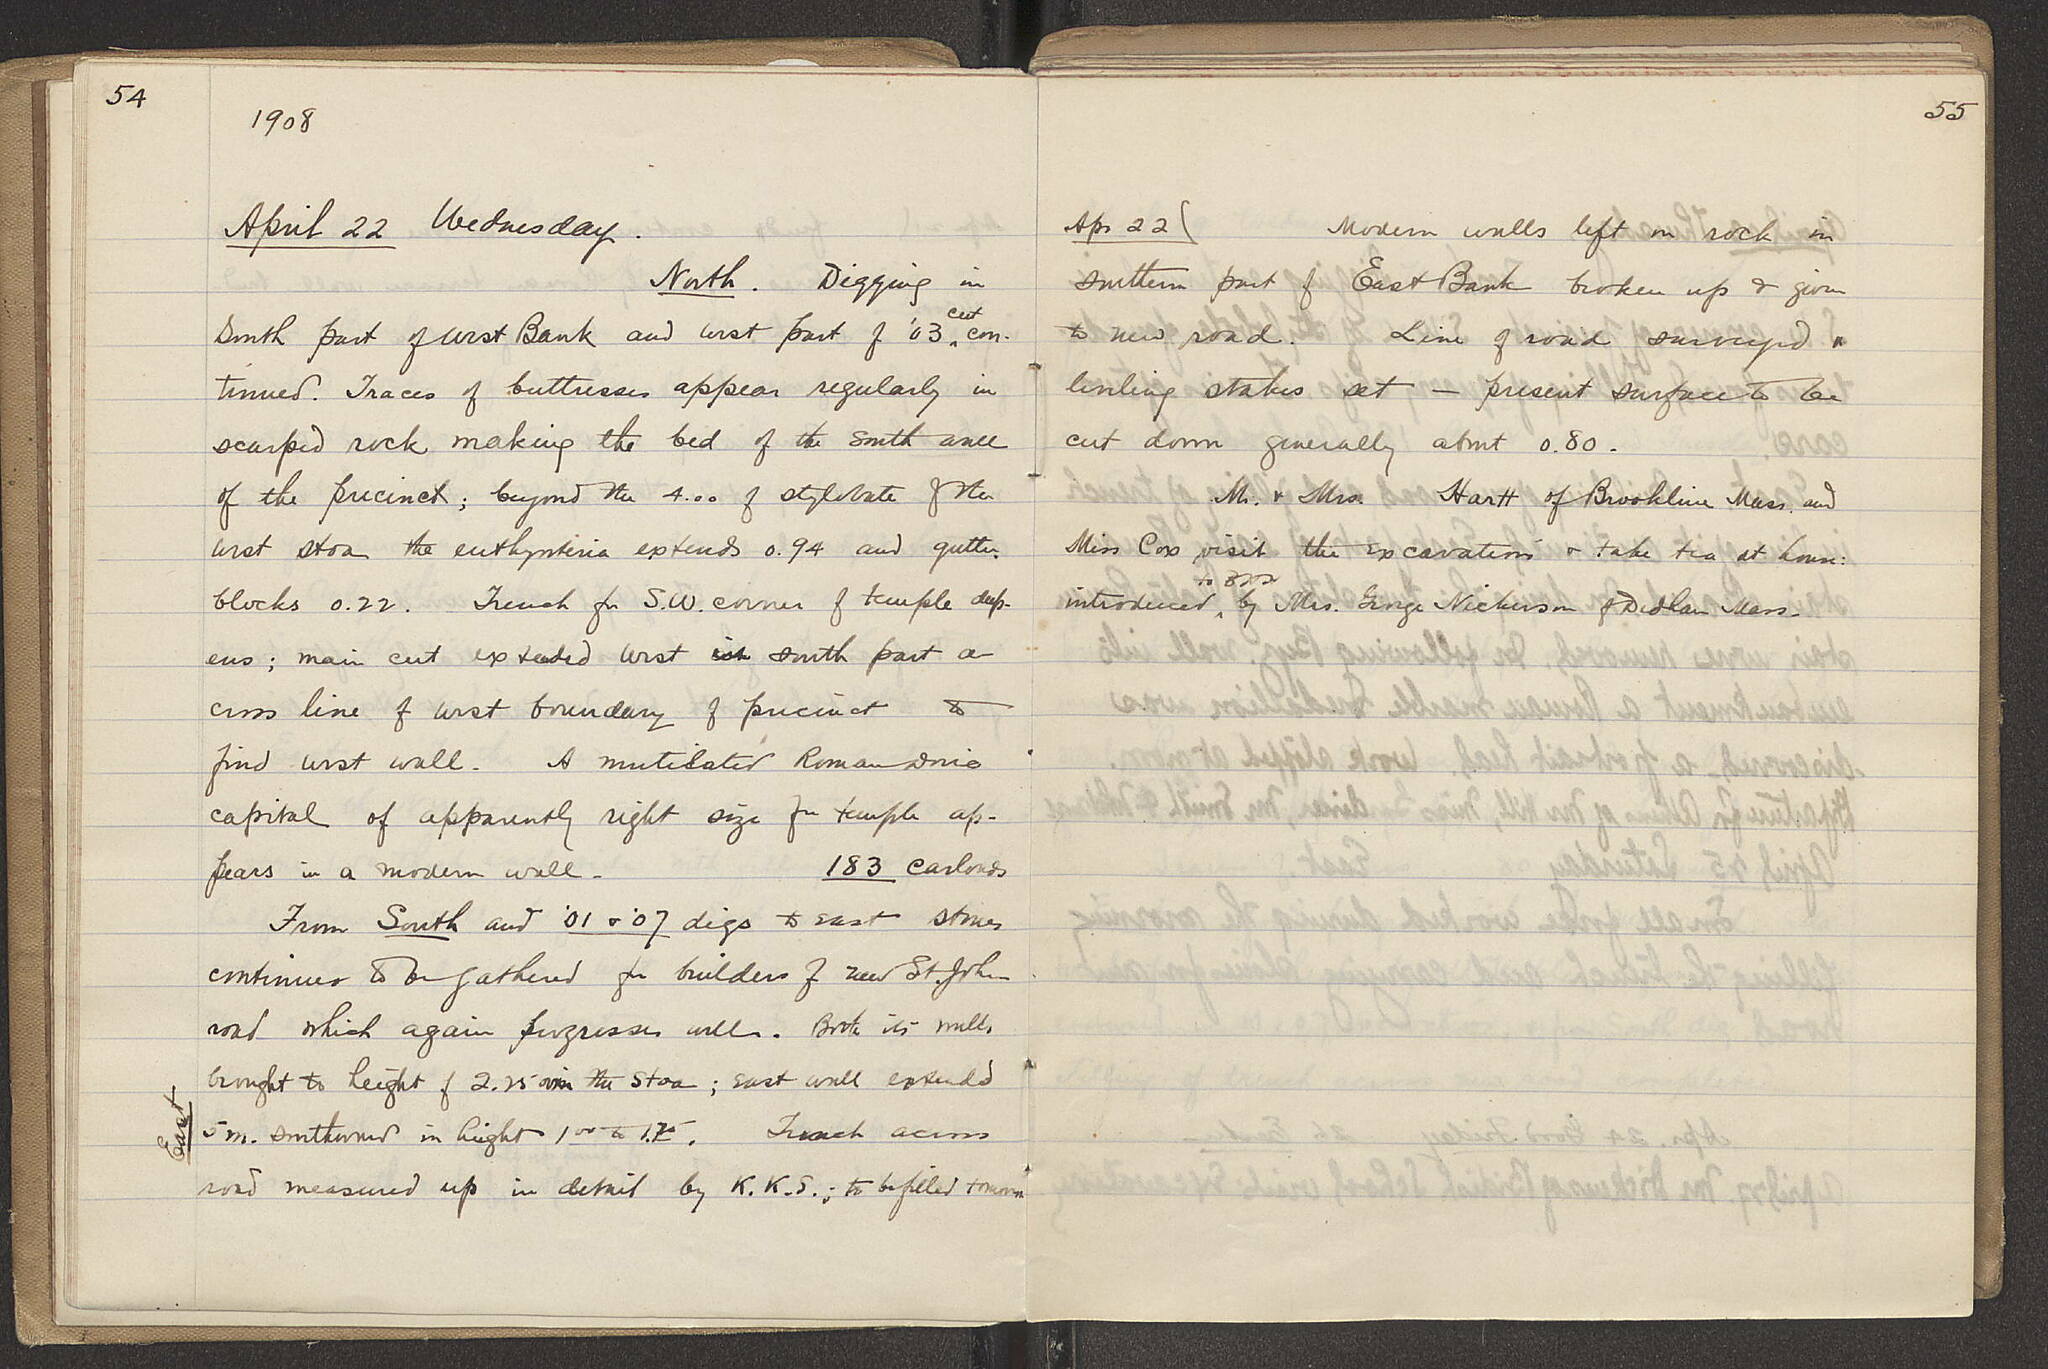 54
1908
April 22 Wednesday.
North. Digging in
South part of West Bank and west part of '03 cut con-
tinued. Traces of buttresses appear regularly in
scarped rock making the bed of the south wall
of the precinct; beyond the 4.00 of stylobate of the
west stoa the euthynteria extends 0.94 and gutter
blocks 0.22. Trench for S.W. corner of temple deep-
ens; main cut extended west in south part a-
cross line of west boundary of precinct to
find west wall. A mutilated Roman Doric
capital of apparently right size for temple ap-
pears in a modern wall. 183 carloads
From South and '01 & '07 digs to east stones
continues to be gathered for builders of new St. John
road which again progresses well. Both its walls
brought to height of 2.25 over the stoa; east wall extended
East
5 m. southward in height 1.00 to 1.75. Trench across
road measured up in detail by K.K.S.; to be filled tomorrow
55
Apr 22 ( Modern walls left on rock in
southern part of East Bank broken up & given
to new road. Line of road surveyed &
leveling stakes set — present surface to be
cut down generally about 0.80.
Mr. & Mrs. Hartt of Brookline Mass. and
Miss Cox visit the excavations & take tea at house:
introduced by Mrs. George Nickerson of Dedham Mass.